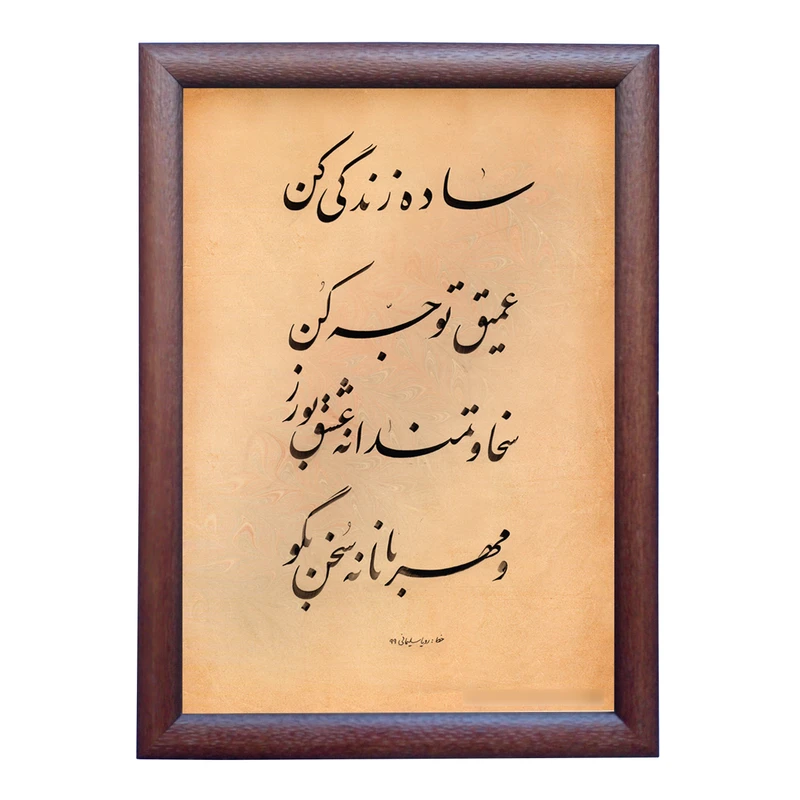 ساده زندگی کن
عمیق توجّه کُن
سخاوتمندانه عشق بورز
و مهربانانه سُخن بگو
خط : رویا سلیمانی ۹۹